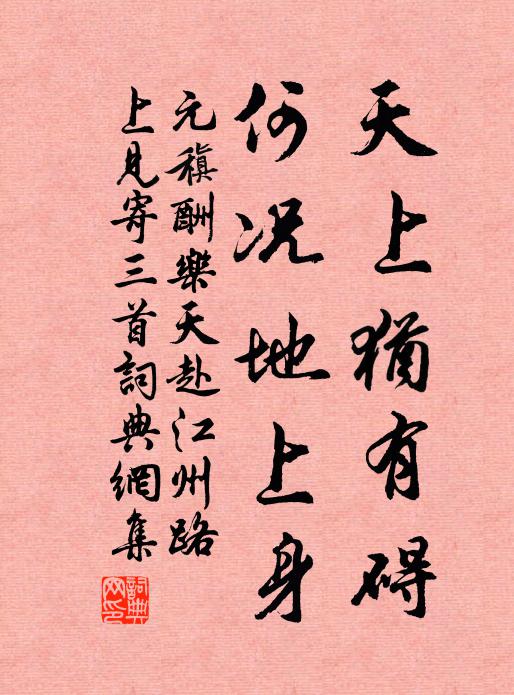 天上猶有碍
何况地上身
元稹酬樂天赴江州路
上見寄三首詞典網集
詞典网印